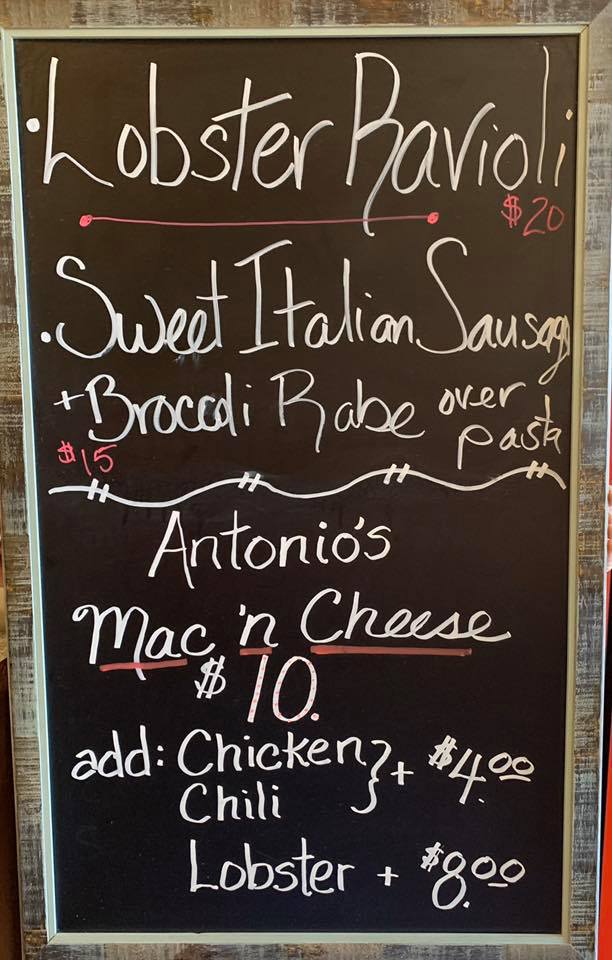 • Lobster Ravioli
$20
• Sweet Italian Sausage
+ Broccoli Rabe over pasta
$15
Antonio's
Mac 'n Cheese
$10.
add: Chicken } + $4.00
Chili
Lobster + $8.00